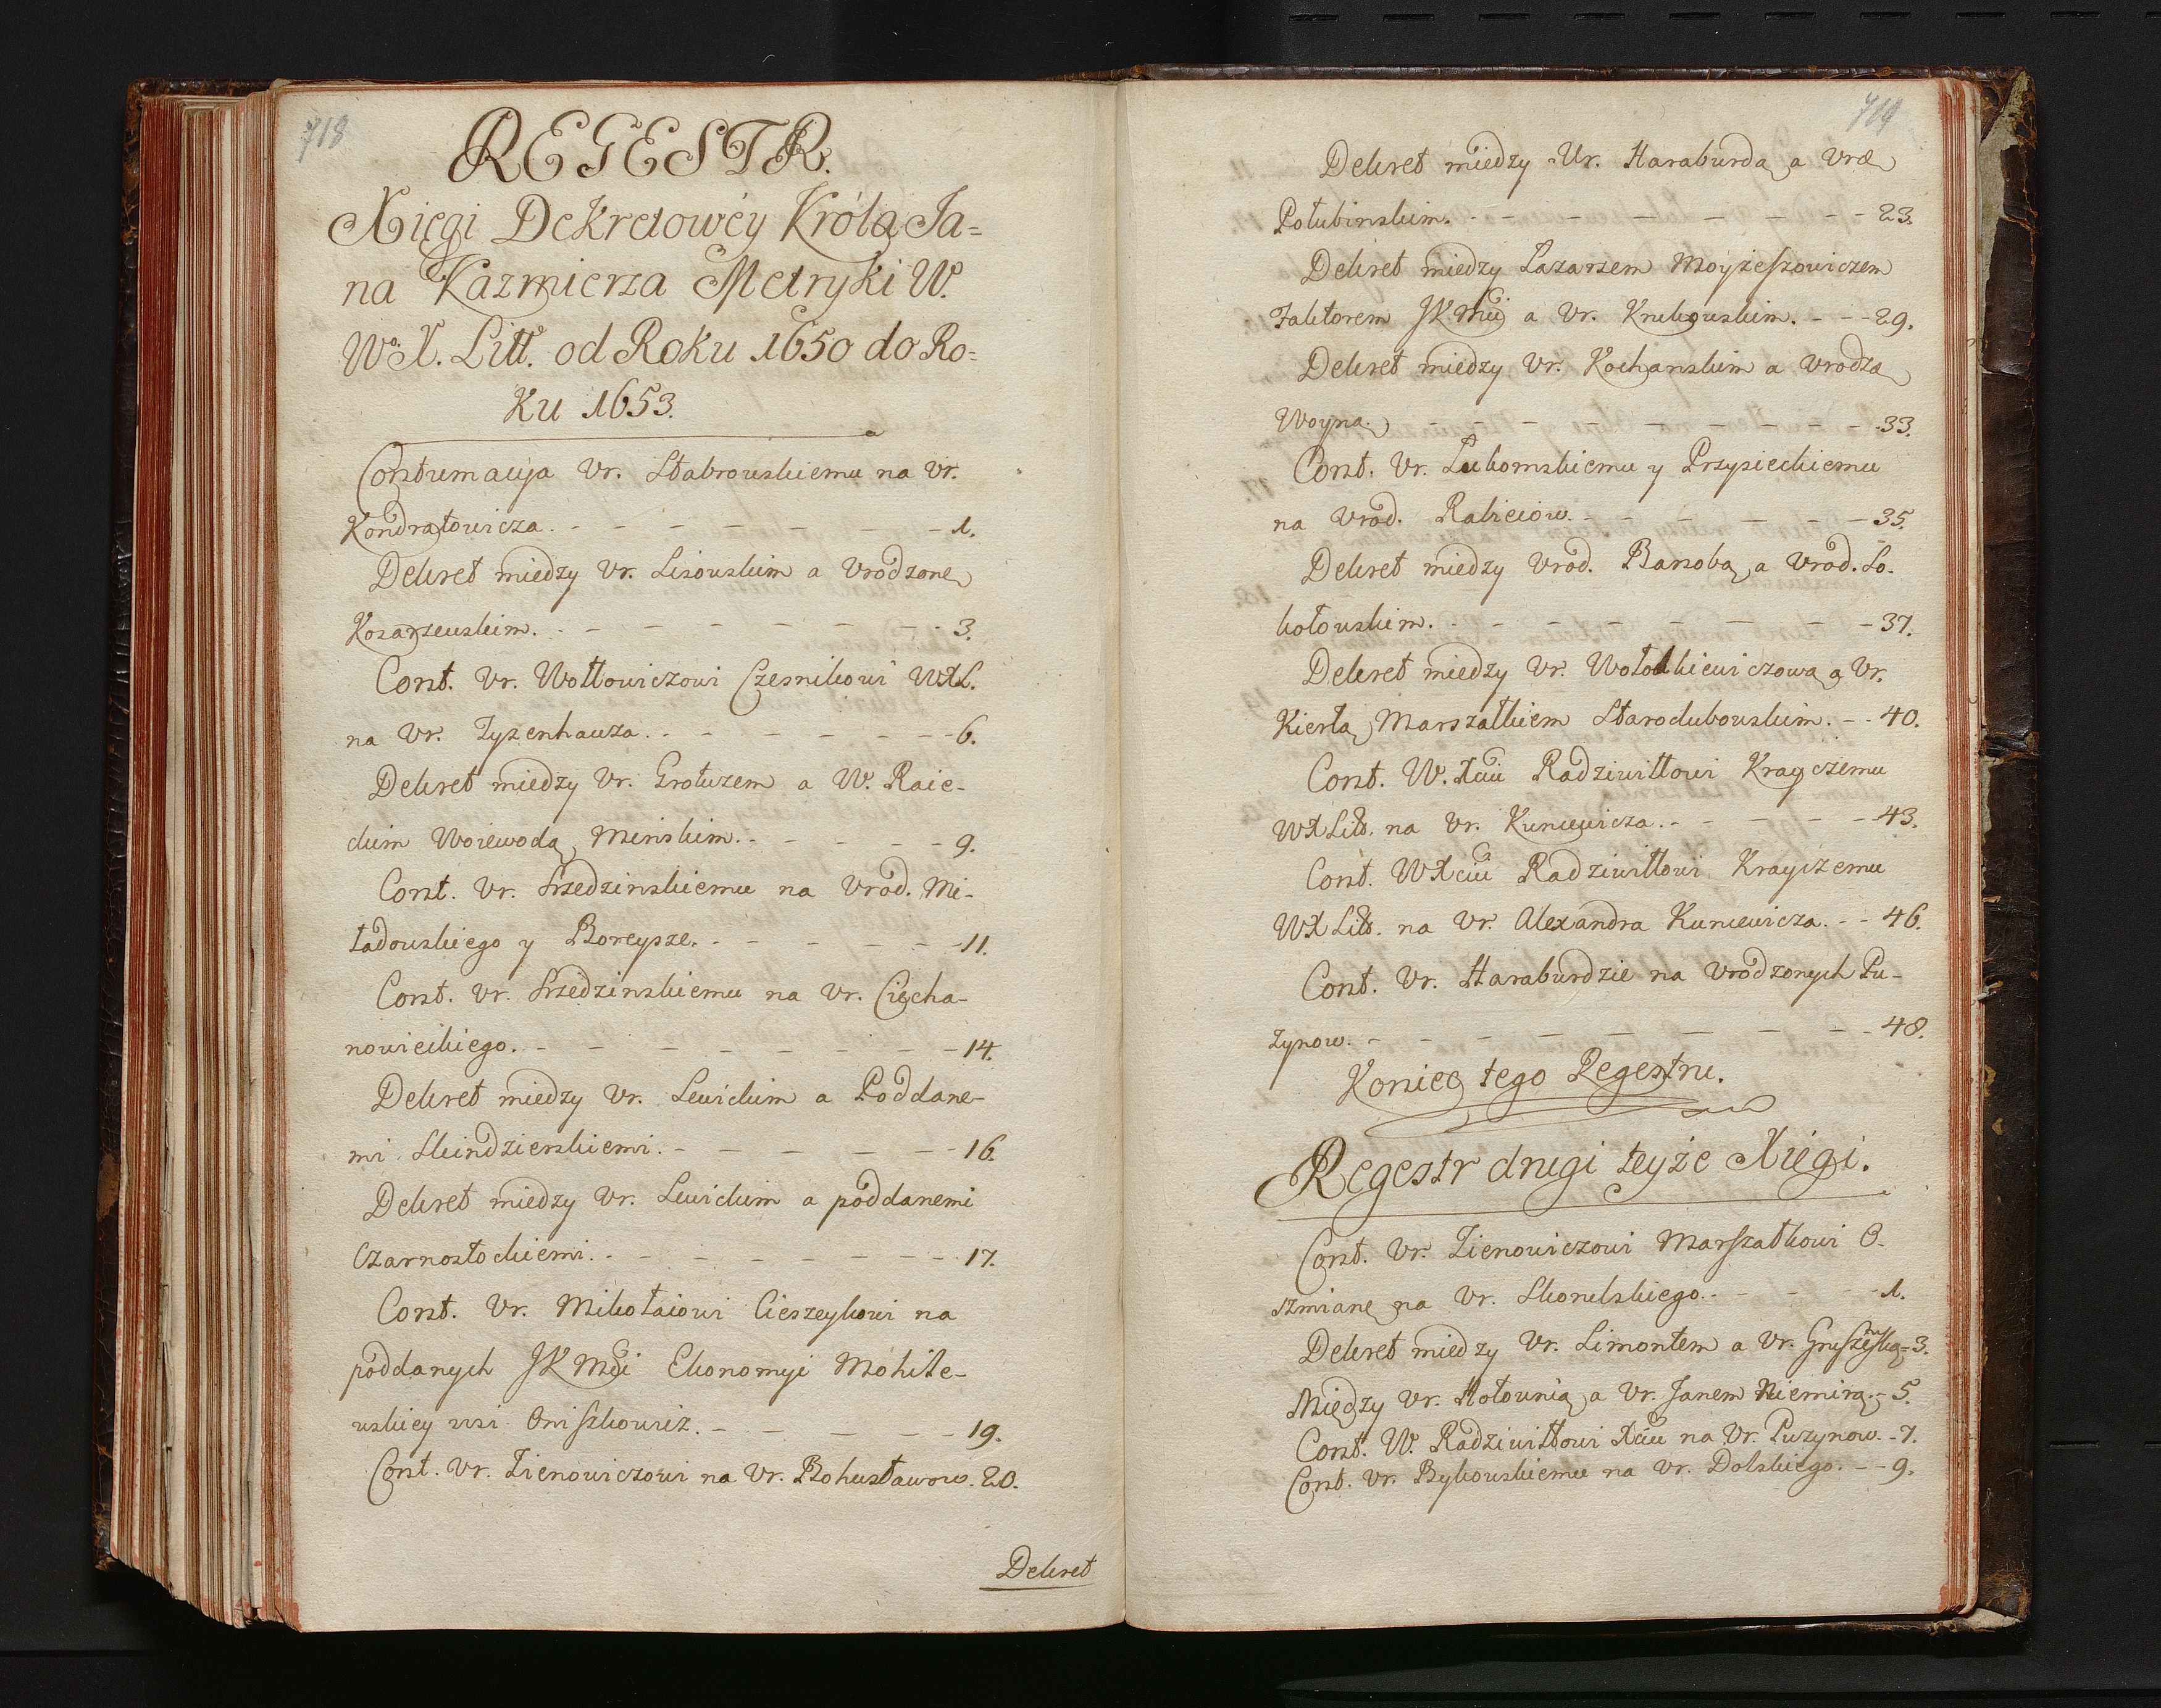 718
REGESTR.
Xięgi Dekretowéy Króla Ja=
na Kazmierza Metryki W.
Wo. X. Litt. od Roku 1650 do Ro=
ku 1653.
Contumacyja Ur. Stabrowskiemu na Ur.
Kondratowicza. - - - - - - - 1.
Dekret miedzy Ur. Lisowskim a Urodzone
Kosarzewskim. - - - - - - - 3.
Cont. Ur. Wołłowiczowi Czesnikowi WXL.
na Ur. Zyzenhauza. - - - - - - 6.
Dekret miedzy Ur. Grotuzem a W. Raie-
ckim Woiewodą Mińskim. - - - - - 9.
Cont. Ur. Srzedzinskiemu na Urod. Mi-
ładowskiego y Boreysze. - - - - - - 11.
Cont. Ur. Srzedzinskiemu na Ur. Ciecha-
nowieckiego. - - - - - - - - 14.
Dekret miedzy Ur. Lewickim a Poddane-
mi Skindzierskiemi. - - - - - - 16.
Dekret miedzy Ur. Lewickim a poddanemi
Czarnostockiemi. - - - - - - - 17.
Cont. Ur. Mikołaiowi Cieszeykowi na
poddanych JKMci Ekonomyi Mohile-
wskiey wsi Oniszkowicz. - - - - - 19.
Cont. Ur. Zienowiczowi na Ur. Bohusławow. 20.
Dekret
719
Dekret miedzy Ur. Haraburdą a Urod
Połubinskim. - - - - - - - - 23.
Dekret miedzy Lazarzem Moyżeszowiczem
Faktorem JKMci a Ur. Krukowskim. - - - 29.
Dekret miedzy Ur. Kochanskim a Urodzą
Woyną. - - - - - - - - - 33.
Cont. Ur. Lukomskiemu y Przysieckiemu
na Urod. Rakieiow. - - - - - - 35.
Dekret miedzy Urod. Barsobą a Urod. So-
kołowskim. - - - - - - - - 37.
Dekret miedzy Ur. Wołodkiewiczową a Ur.
Kierłą Marszałkiem Starodubowskim. - - 40.
Cont. W. Xciu Radziwiłłowi Krayczemu
WXLitt. na Ur. Kuncewicza. - - - - - 43.
Cont. WXciu Radziwiłłowi Krayczemu
WXLitt. na Ur. Alexandra Kuncewicza. - - 46.
Cont. Ur. Haraburdzie na Urodzonych Pu-
zynow. - - - - - - - - - 48.
Koniec tego Regestru.
Regestr drugi teyże Xięgi.
Cont. Ur. Zienowiczowi Marszałkowi O-
szmiane na Ur. Skonelskiego. - - - - 1.
Dekret miedzy Ur. Limontem a Ur. - 3.
Między Ur. Hołownią a Ur. Janem Niemirą. - 5.
Cont. W. Radziwiłłowi Xciu na Ur. Puzynow. - 7.
Cont. Ur. Bykowskiemu na Ur. Dolskiego. - - 9.